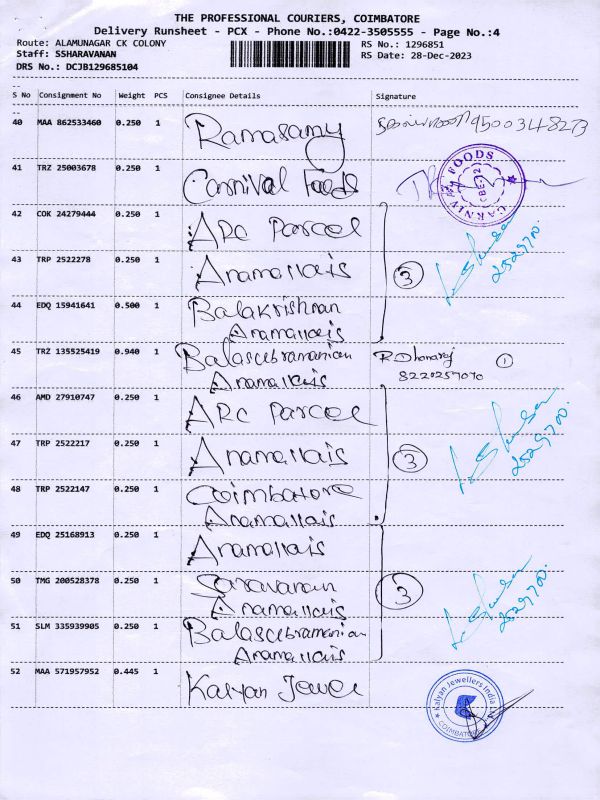 THE PROFESSIONAL COURIERS, COIMBATORE
Delivery Runsheet - PCX - Phone No.:0422-3505555 - Page No.:4
Route: ALAMUNAGAR CK COLONY
RS No.: 1296851
Staff: SSHARAVANAN
RS Date: 28-Dec-2023
DRS No.: DCJB129685104
S No Consignment No Weight PCS Consignee Details Signature
40 MAA 862533460 0.250 1 Ramasamy 9500348273
41 TRZ 25003678 0.250 1 Carnival Foods
FOODS
CBE-12
CARNIVAL
42 COK 24279444 0.250 1 ARC Parcel
43 TRP 2522278 0.250 1 Anamallais 3 2529700.
44 EDQ 15941641 0.500 1 Balakrishnan
Anamallais
45 TRZ 135525419 0.940 1 Balasubramanian R Dhanaraj 1
Anamallais 8220257070
46 AMD 27910747 0.250 1 ARC Parcel
47 TRP 2522217 0.250 1 Anamallais 3 2529700.
48 TRP 2522147 0.250 1 Coimbatore
Anamallais
49 EDQ 25168913 0.250 1 Anamallais
50 TMG 200528378 0.250 1 Saravanan 3 2529700.
Anamallais
51 SLM 335939905 0.250 1 Balasubramanian
Anamallais
52 MAA 571957952 0.445 1 Kalyan Jewel
Kalyan Jewellers India Ltd
COIMBATORE